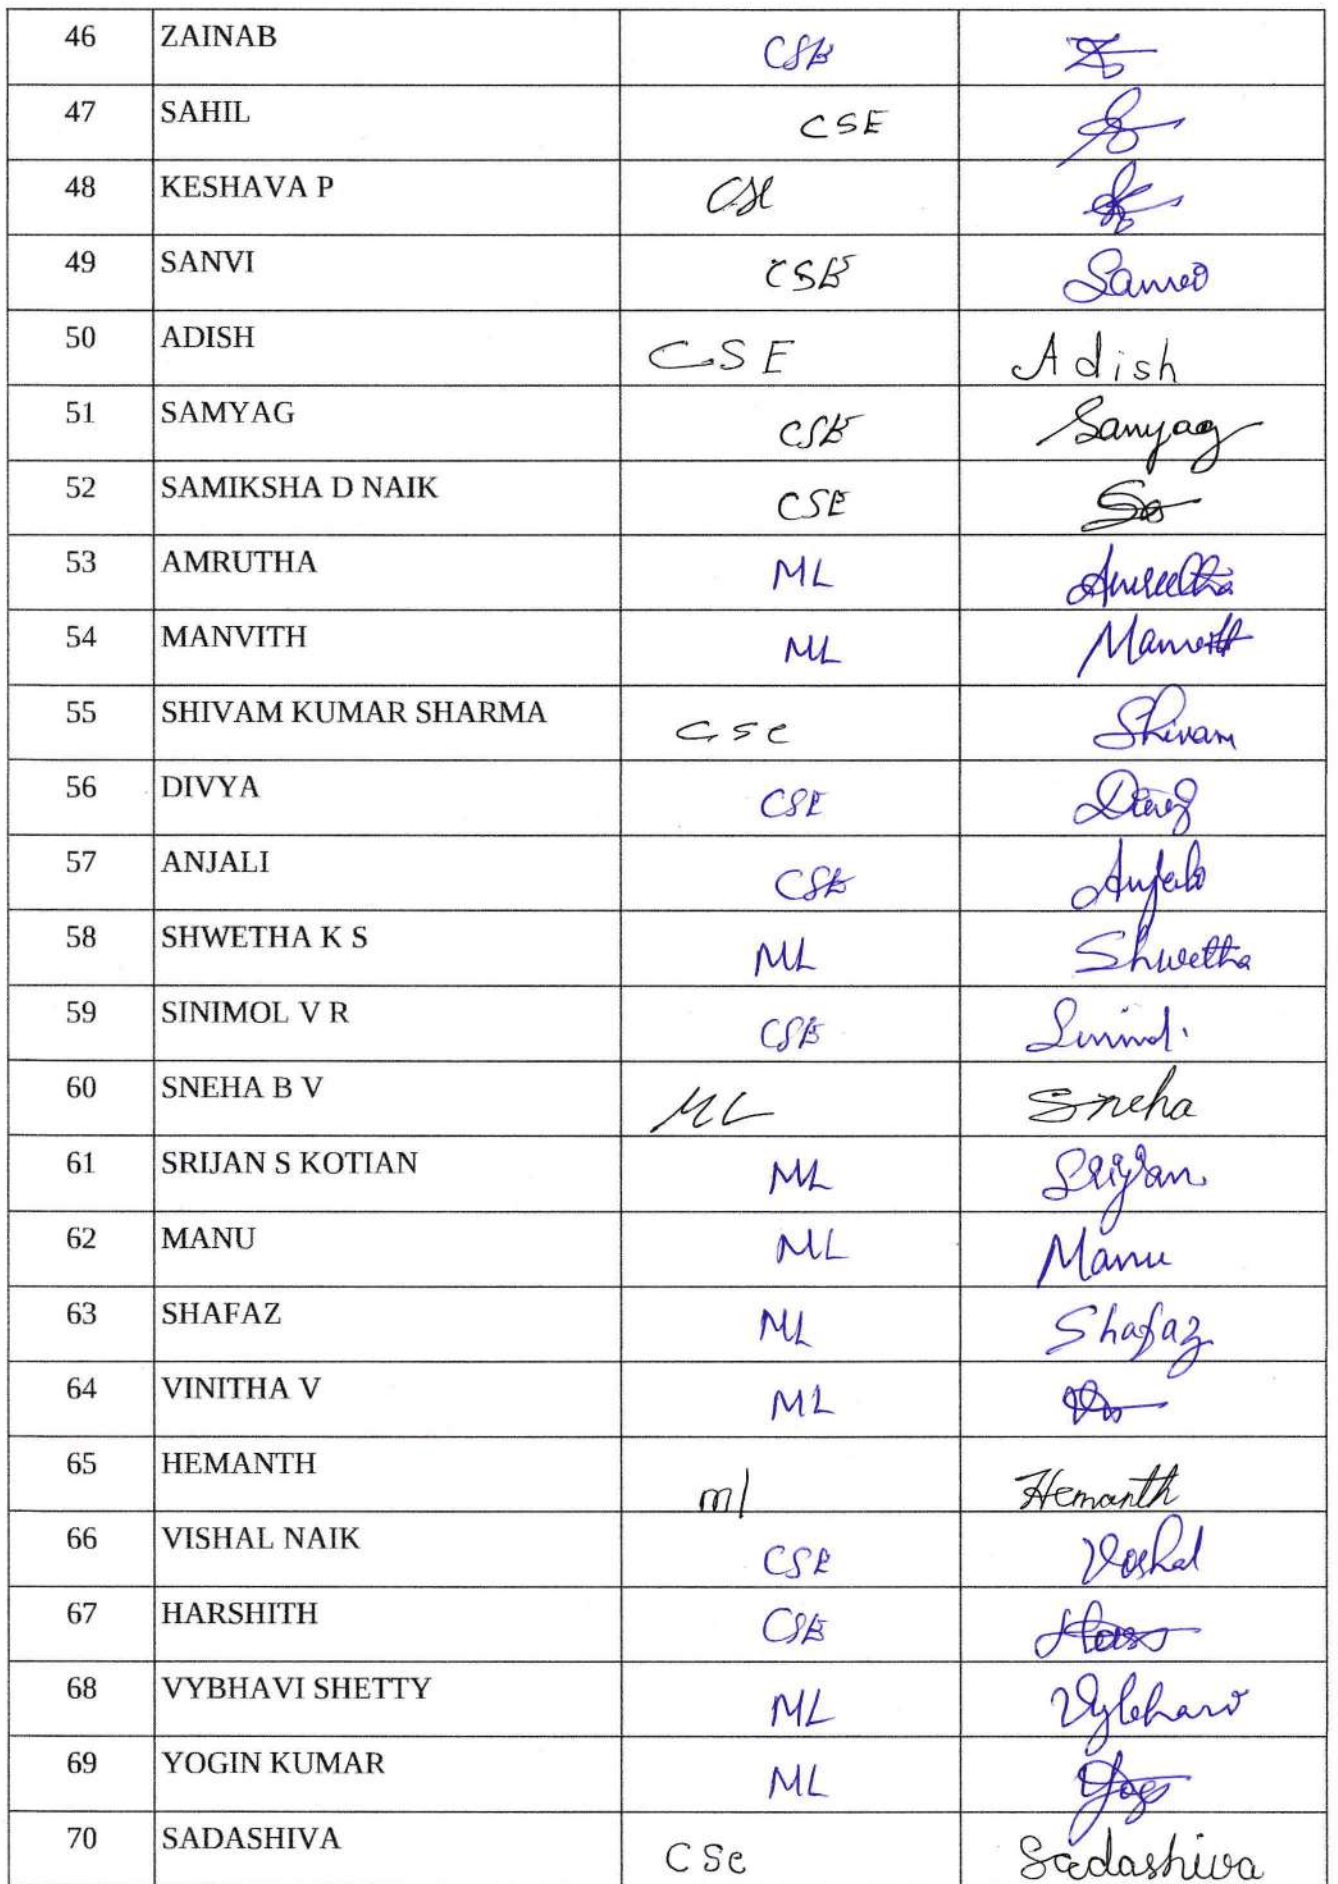 46 ZAINAB CSE
47 SAHIL CSE
48 KESHAVA P CSE
49 SANVI CSE Sanvi
50 ADISH CSE Adish
51 SAMYAG CSE Samyag
52 SAMIKSHA D NAIK CSE
53 AMRUTHA ML Amrutha
54 MANVITH ML Manvith
55 SHIVAM KUMAR SHARMA Cse Shivam
56 DIVYA CSE Divya
57 ANJALI CSE Anjali
58 SHWETHA K S ML Shwetha
59 SINIMOL V R CSE Sinimol
60 SNEHA B V ML Sneha
61 SRIJAN S KOTIAN ML Srijan
62 MANU ML Manu
63 SHAFAZ ML Shafaz
64 VINITHA V ML
65 HEMANTH ml Hemanth
66 VISHAL NAIK CSE Vishal
67 HARSHITH CSE
68 VYBHAVI SHETTY ML Vybhavi
69 YOGIN KUMAR ML
70 SADASHIVA CSe Sadashiva